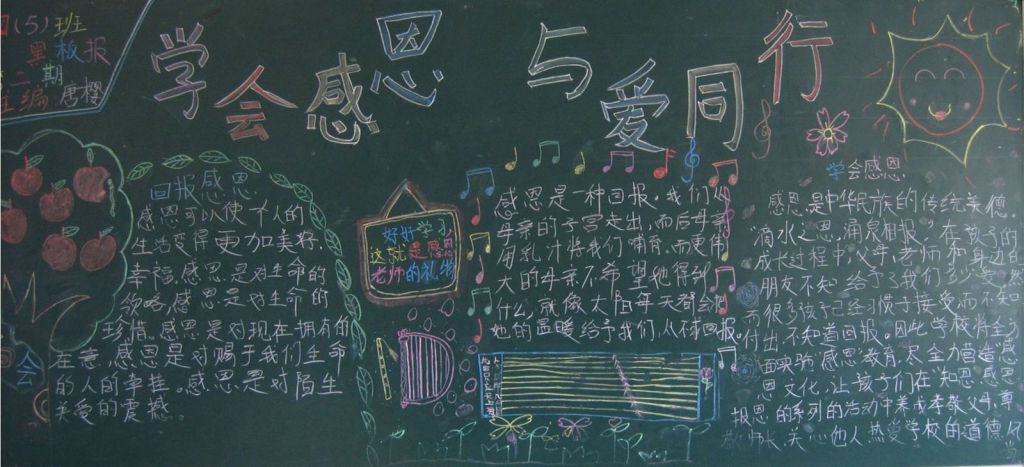 (5)班
黑板报
二期
主编唐樱
学会感恩 与爱同行
回报感恩
感恩可以使个人的
生活变得更加美好.
幸福.感恩是对生命的
领略,感恩是对生命的
珍惜.感恩是对现在拥有的
在意,感恩是对赐于我们生命
的人的牵挂。感恩是对陌生
关爱的震撼。
好好学习
这就是感恩
老师的礼物
感恩是一种回报。我们从
母亲的子宫走出,而后母亲
用乳汁将我们哺育.而更伟
大的母亲不希望她得到
什么,就像太阳每天都会把
她的温暖给予我们,从不回报。
学会感恩
感恩是中华民族的传统美德。
"滴水之恩,涌泉相报"。在孩子的
成长过程中,父母,老师和身边的
朋友不知给予了我们多少爱
而很多孩子已经习惯于接受而不知
付出,不知道回报。因此学校将全
面实施"感恩"教育,尽全力营造感
恩文化,让孩子们在"知恩,感恩
报恩"的系列的活动中养成孝敬父母,尊
敬师长关心他人热爱学校的道德
会